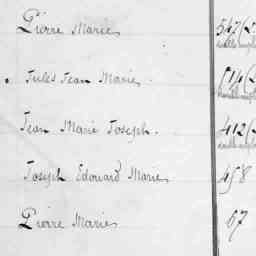 Pierre Marie
547 (2
Jules Jean Marie.
Jean Marie Joseph.
412 (2
Joseph Edouard Marie
458
Pierre Marie
67